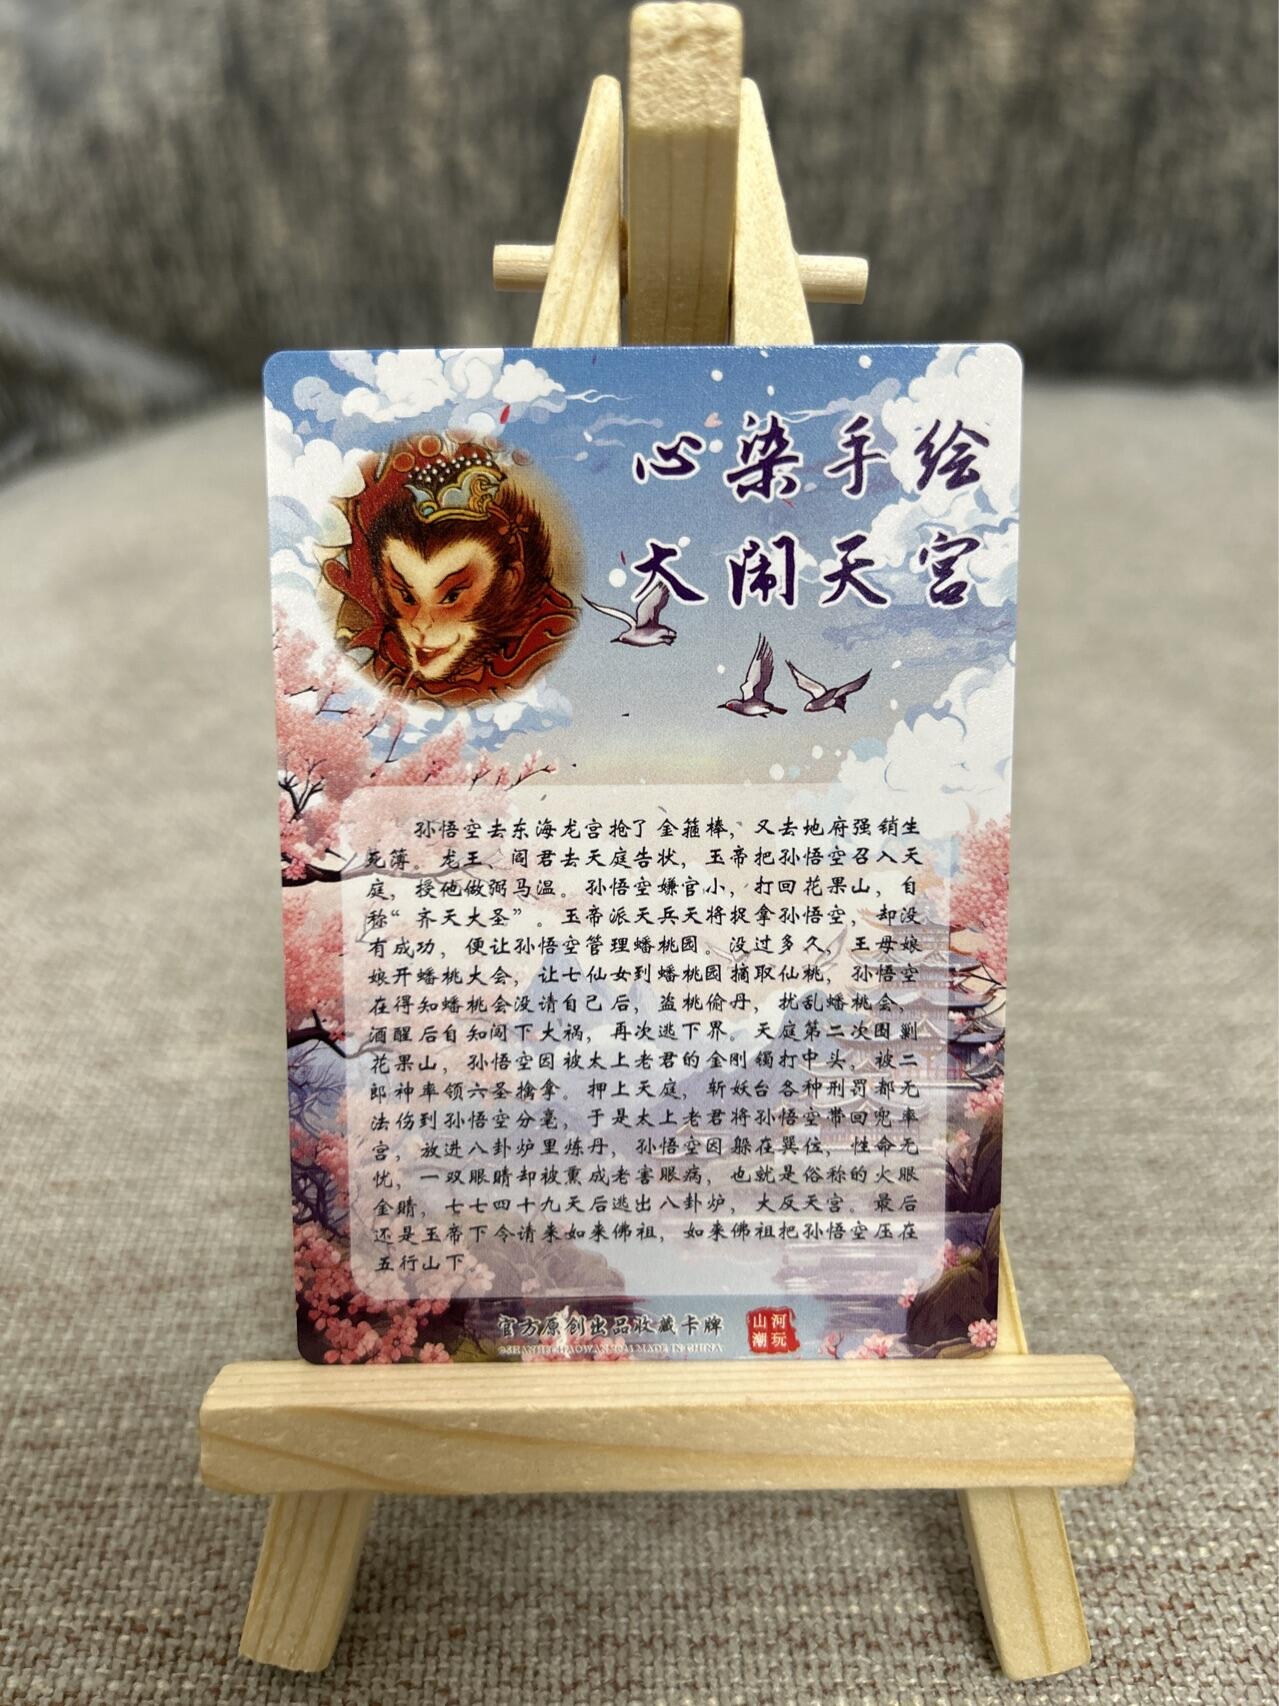 心染手绘
大闹天宫
孙悟空去东海龙宫抢了金箍棒，又去地府强销生
死簿。龙王、阎君去天庭告状，玉帝把孙悟空召入天
庭，授他做弼马温。孙悟空嫌官小，打回花果山，自
称“齐天大圣”。玉帝派天兵天将捉拿孙悟空，却没
有成功，便让孙悟空管理蟠桃园。没过多久，王母娘
娘开蟠桃大会，让七仙女到蟠桃园摘取仙桃，孙悟空
在得知蟠桃会没请自己后，盗桃偷丹，扰乱蟠桃会，
酒醒后自知闯下大祸，再次逃下界。天庭第二次围剿
花果山，孙悟空因被太上老君的金刚镯打中头，被二
郎神率领六圣擒拿。押上天庭，斩妖台各种刑罚都无
法伤到孙悟空分毫，于是太上老君将孙悟空带回兜率
宫，放进八卦炉里炼丹，孙悟空因躲在巽位，性命无
忧，一双眼睛却被熏成老害眼病，也就是俗称的火眼
金睛，七七四十九天后逃出八卦炉，大反天宫。最后
还是玉帝下令请来如来佛祖，如来佛祖把孙悟空压在
五行山下。
官方原创出品收藏卡牌
山河
潮玩
MADE IN CHINA